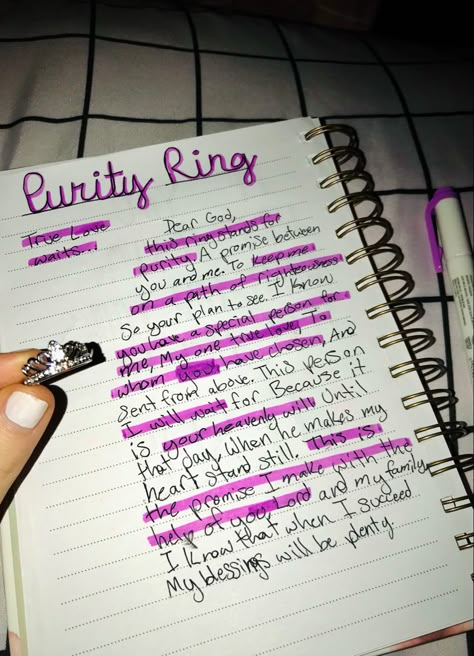 Purity Ring
True Love
waits...
Dear God,
this ring stands for
Purity. A promise between
you and me. To keep me
on a path of righteousness
So your plan to see. I know
you have a special person for
me, My one true love, To
whom you have chosen, And
Sent from above. This person
I will wait for Because it
is your heavenly will Until
that day, When he makes my
heart stand still. This is
the promise I make with the
help of you Lord and my family
I know that when I succeed
My blessings will be plenty.